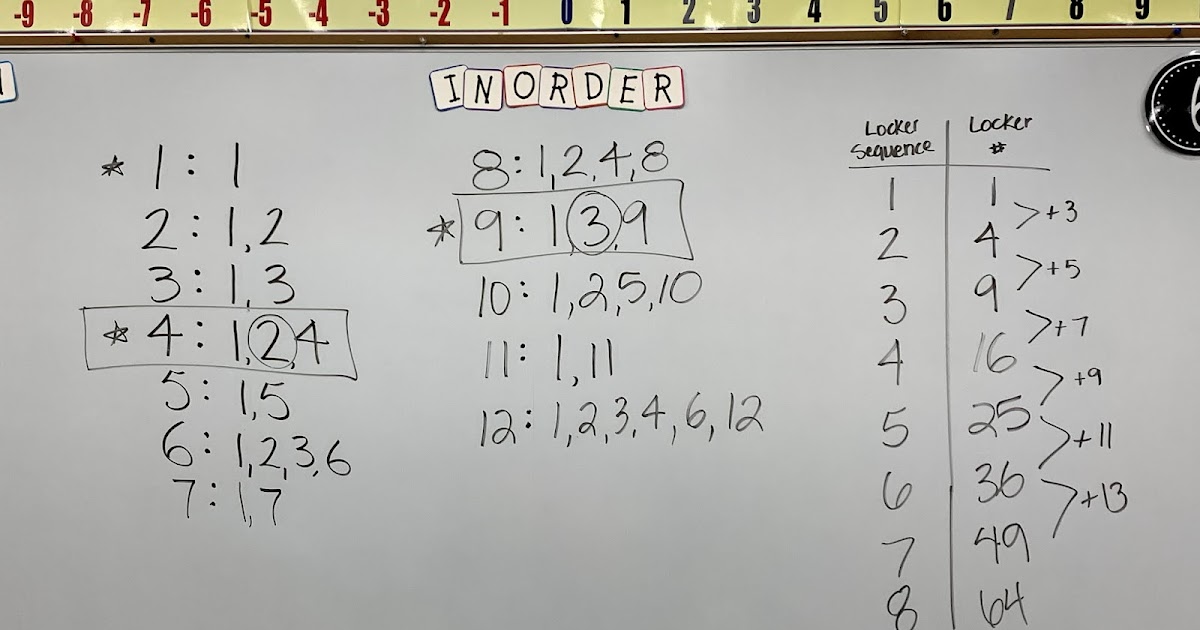 -9 -8 -7 -6 -5 -4 -3 -2 -1 0 1 2 3 4 5 6 7 8 9
IN ORDER
* 1: 1
2: 1,2
3: 1,3
* 4: 1,2,4
5: 1,5
6: 1,2,3,6
7: 1,7
8: 1,2,4,8
* 9: 1,3,9
10: 1,2,5,10
11: 1,11
12: 1,2,3,4,6,12
Locker Sequence Locker #
1 1
+3
2 4
+5
3 9
+7
4 16
+9
5 25
+11
6 36
+13
7 49
8 64